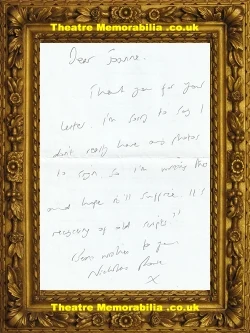 Theatre Memorabilia .co.uk
Dear Joanne.
Thank you for your
letter. I'm sorry to say I
don't really have any photos
to sign. So I'm writing this
and hope it'll suffice. It's
recycling of old scripts!
Warm wishes to you
Nicholas
X
Theatre Memorabilia .co.uk